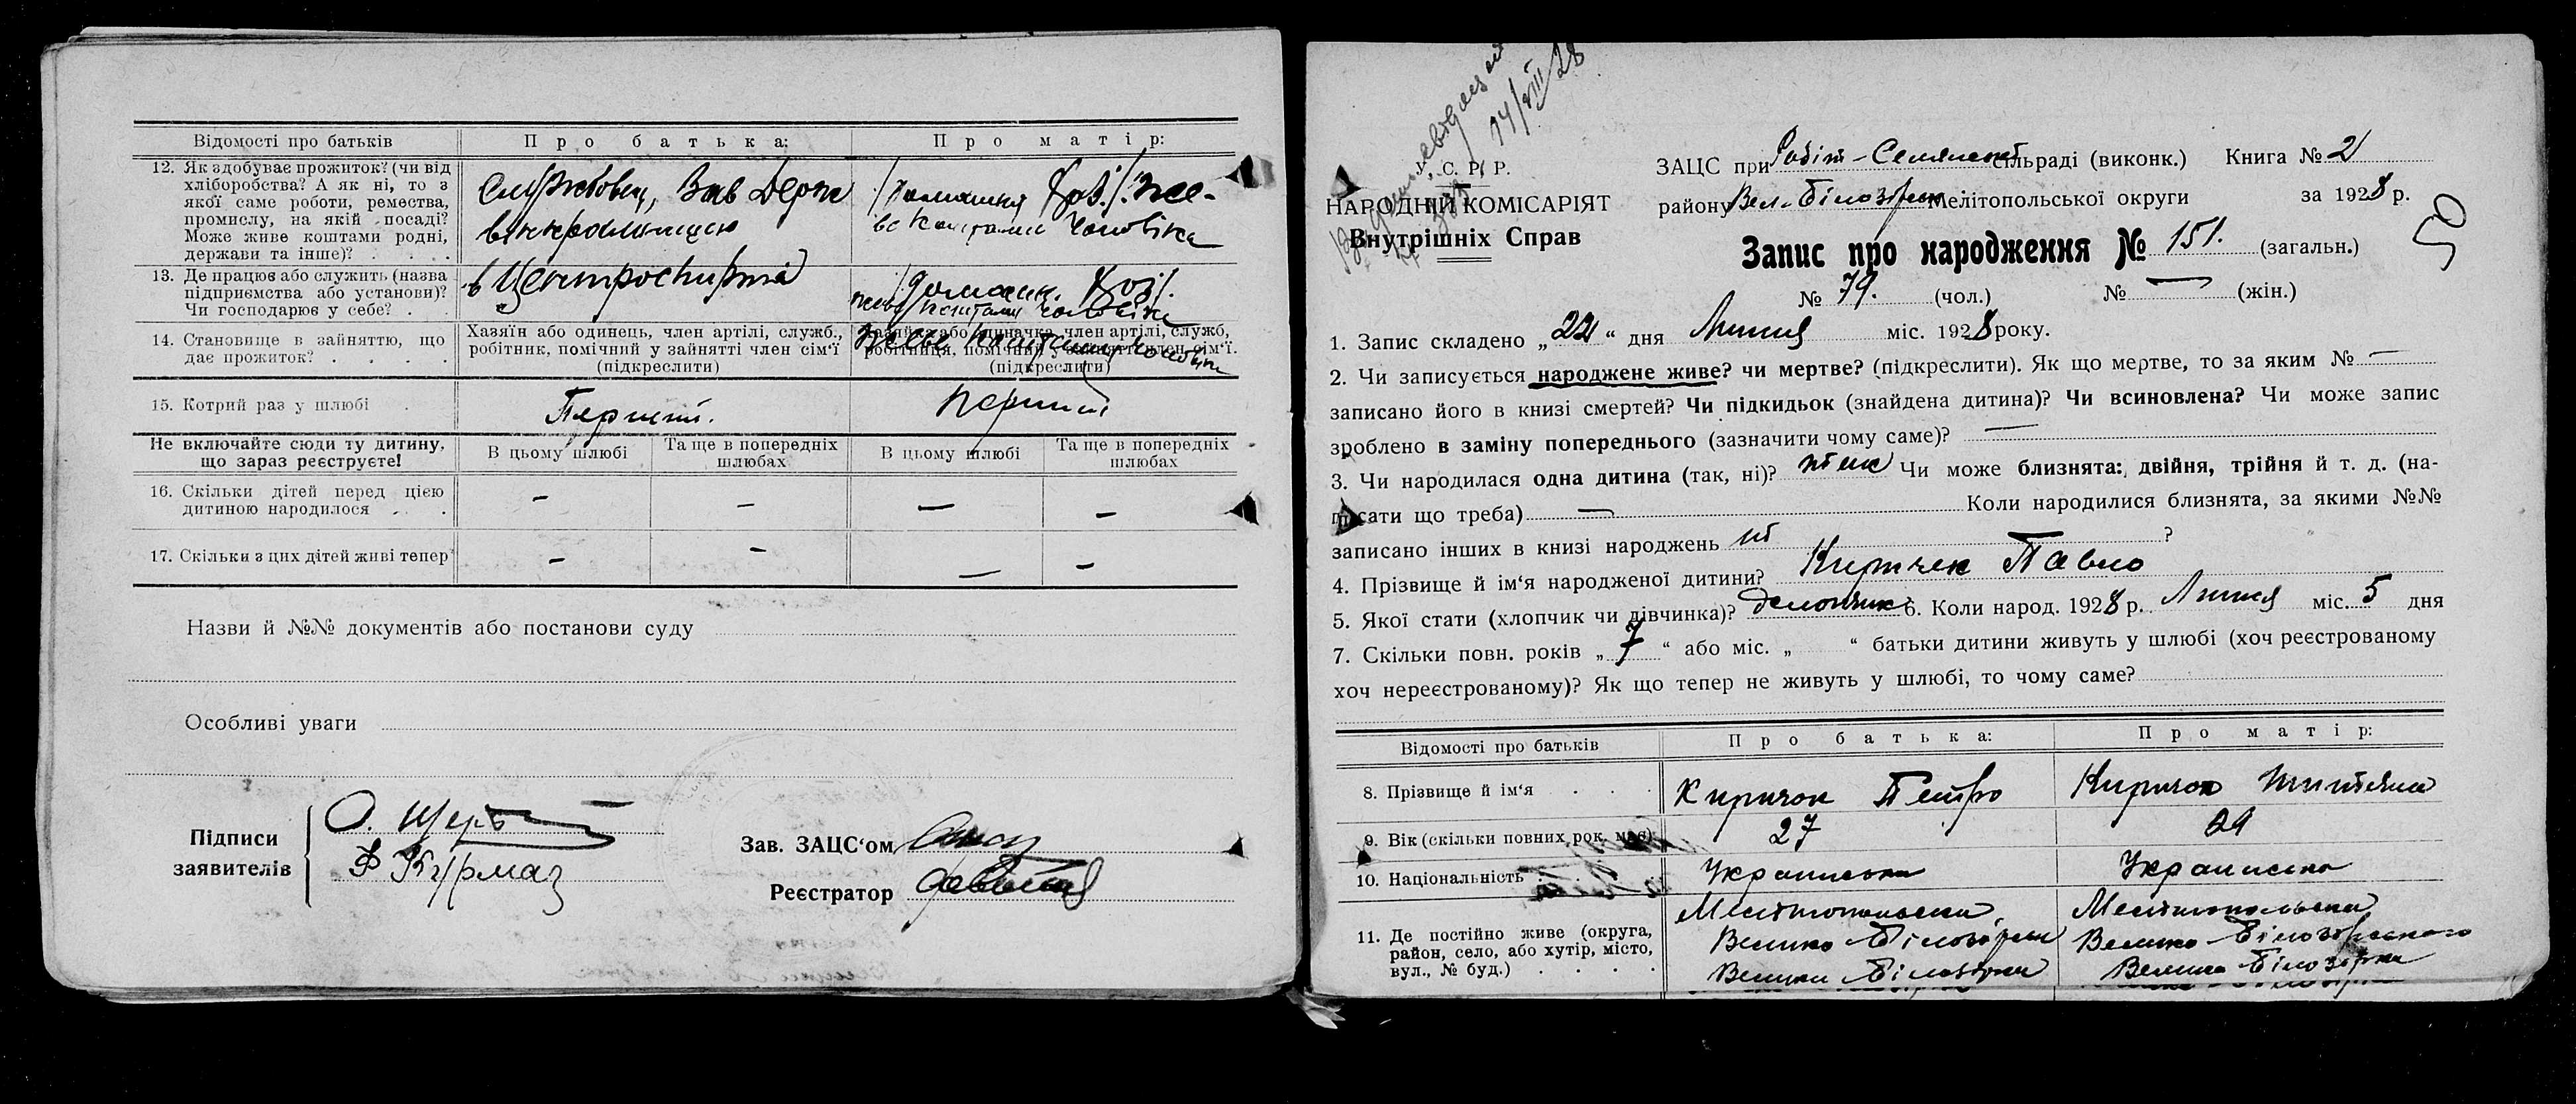 Відомості про батьків
Про батька:
Про матір:
12. Як здобуває прожиток? (чи від
хліборобства? А як ні, то з
якої саме роботи, ремества,
промислу, на якій посаді?
Може живе коштами родні,
держави та інше)? . . .
Службовец, Зав Держ
/Домашня Хоз./. жи-
ве Коштами Чоловіка
13. Де працює або служить (назва
підприємства або установи)?
Чи господарює у себе? . .
в Центроспирта
/Домашн. Хоз/.
живе Коштами Чоловіка
14. Становище в зайняттю, що
дає прожиток? . . . .
Хазяїн або одинець, член артілі, служб.,
робітник, помічний у зайнятті член сім'ї
(підкреслити)
Хазяйка або одиначка, член артілі, служб,
робітниця, помічний у зайнятті член сім'ї.
(підкреслити)
Живе Коштами Чоловіка
15. Котрий раз у шлюбі .
Перший.
Перший
Не включайте сюди ту дитину,
що зараз реєструєте!
В цьому шлюбі
Та ще в попередніх
шлюбах
В цьому шлюбі
Та ще в попередніх
шлюбах
16. Скільки дітей перед цією
дитиною народилося . .
— — — —
17. Скільки з цих дітей живі тепер?
— — — —
Назви й №№ документів або постанови суду
Особливі уваги
Підписи
заявителів
Ф Курмаз
Зав. ЗАЦС'ом
Реєстратор
14/VIII 28
У. С. Р. Р.
НАРОДНІЙ КОМІСАРІЯТ
Внутрішніх Справ
ЗАЦС при Робіт-Селянськ сільраді (виконк.) Книга № 2
району Вел-Білозірськ Мелітопольської округи за 1928 р.
50
Запис про народження № 151. (загальн.)
№ 79. (чол.) № — (жін.)
1. Запис складено „22“ дня Липня міс. 1928 року.
2. Чи записується народжене живе? чи мертве? (підкреслити). Як що мертве, то за яким № —
записано його в книзі смертей? Чи підкидьок (знайдена дитина)? Чи всиновлена? Чи може запис
зроблено в заміну попереднього (зазначити чому саме)? —
3. Чи народилася одна дитина (так, ні)? так Чи може близнята: двійня, трійня й т. д. (на-
писати що треба) — Коли народилися близнята, за якими №№
записано інших в книзі народжень ні ?
4. Прізвище й ім'я народженої дитини? Киричек Павло
5. Якої стати (хлопчик чи дівчинка)? 6. Коли народ. 1928 р. Липня міс. 5 дня
7. Скільки повн. років „7“ або міс. „ “ батьки дитини живуть у шлюбі (хоч реєстрованому
хоч нереєстрованому)? Як що тепер не живуть у шлюбі, то чому саме?
Відомості про батьків
Про батька:
Про матір:
8. Прізвище й ім'я . . .
Киричок Петро
Киричок Титяна
9. Вік (скільки повних рок. має)
27
29
10. Національність . . . .
Українська
Українська
11. Де постійно живе (округа,
район, село, або хутір, місто,
вул., № буд.) . . . .
Мелітопольськ,
Велико Білозірськ
Велика Білозірка
Мелітопольськ
Велико Білозорського
Велика Білозірка